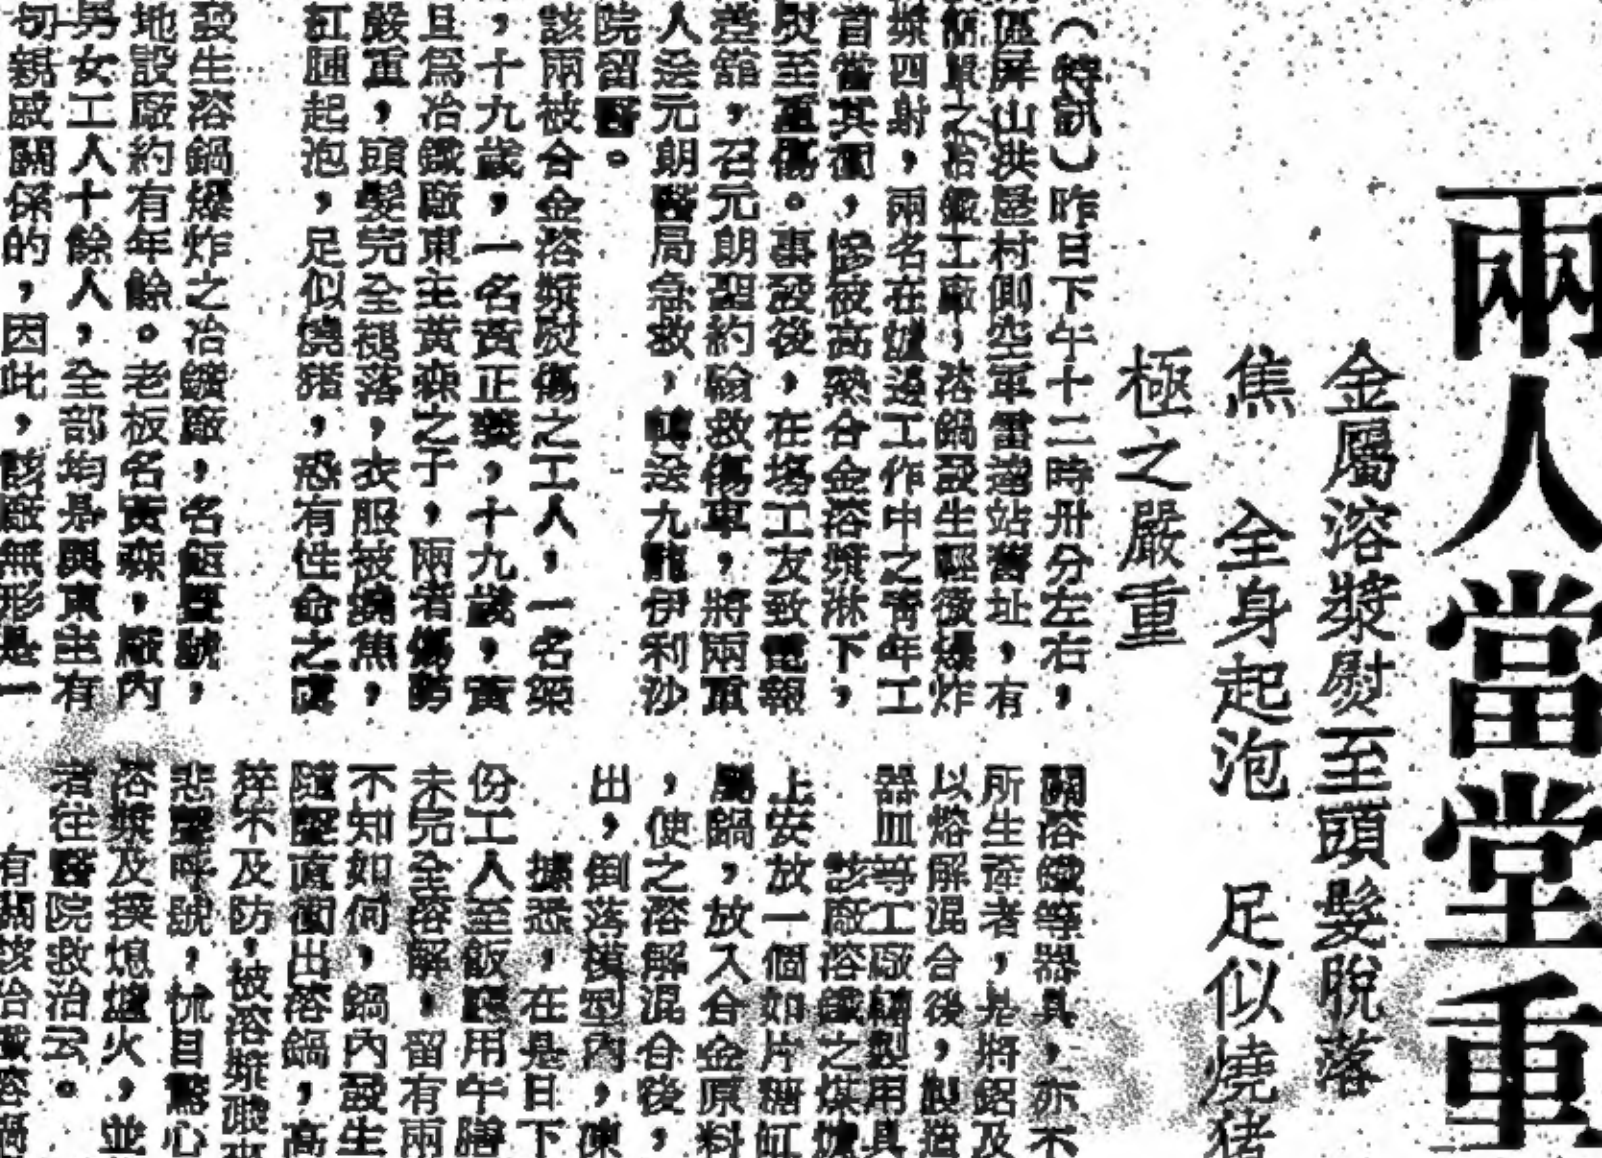 兩人當堂重
金屬溶漿熨至頭髮脫落
焦　全身起泡　足似燒猪
極之嚴重
（特訊）昨日下午十二時卅分左右，
區屏山洪屋村側空軍雷達站舊址，有
簡單之冶鐵工廠，溶鍋發生輕微爆炸
漿四射，兩名在爐邊工作中之青年工
首當其衝，慘被高熱合金溶漿淋下，
熨至重傷。事發後，在塲工友致電報
差館，召元朗聖約翰救傷車，將兩
人送元朗醫局急救，轉送九龍伊利沙
院留醫。
該兩被合金溶漿熨傷之工人，一名梁
，十九歲，一名黃正，十九歲，黃
且爲冶鐵廠東主黃森之子，兩者傷勢
嚴重，頭髮完全褪落，衣服被燒焦，
紅腫起泡，足似燒猪，恐有性命之虞
發生溶鍋爆炸之冶鐵廠，名號，
地設廠約有年餘。老板名黃森，廠內
男女工人十餘人，全部均是與東主有
切親戚關係的，因此，該廠無形是一
關溶鐵等器具，亦不
所生產者，是將鋁及
以熔解混合後，製造
器皿等工廠輾製用具
該廠溶鐵之煤爐
上安放一個如片糖缸
鍋，放入合金原料
，使之溶解混合後，
出，倒落模型內，凍
據悉，在是日下
份工人至飯廳用午膳
未完全溶解，留有兩
不知如何，鍋內發生
隨壓直衝出溶鍋，高
猝不及防，被溶漿
悲聲呼號，怵目驚心
溶漿及撲熄爐火，並
者往醫院救治云。
有關該冶鐵溶鍋